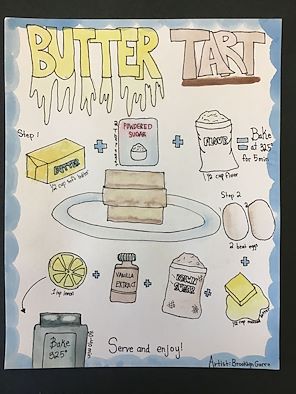 BUTTER TART
Step 1
BUTTER
1/2 cup soft butter
POWDERED
SUGAR
FLOUR
1/2 cup flour
Bake
at 325°
for 5 min
Step 2
2 beat eggs
1 tsp lemon
VANILLA
EXTRACT
BROWN
SUGAR
Bake
325°
Serve and enjoy!
Artist: Brooklyn